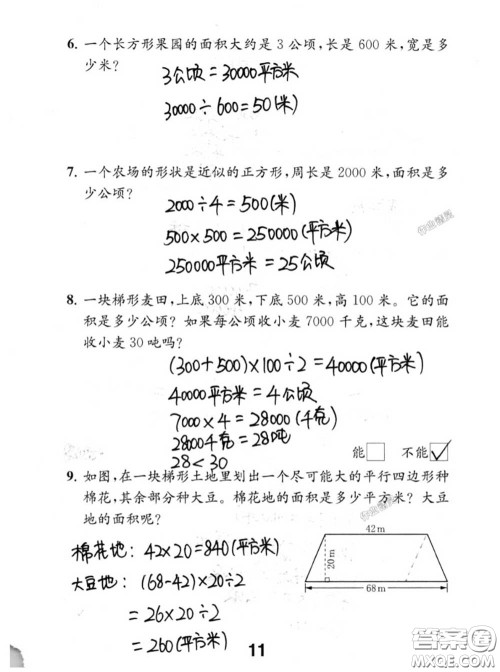 6. 一个长方形果园的面积大约是 3 公顷，长是 600 米，宽是多
少米？
3公顷=30000平方米
30000÷600=50(米)
7. 一个农场的形状是近似的正方形，周长是 2000 米，面积是多
少公顷？
2000÷4=500(米)
500×500=250000(平方米)
250000平方米=25公顷
8. 一块梯形麦田，上底 300 米，下底 500 米，高 100 米。它的面
积是多少公顷？如果每公顷收小麦 7000 千克，这块麦田能
收小麦 30 吨吗？
(300+500)×100÷2=40000(平方米)
40000平方米=4公顷
7000×4=28000(千克)
28000千克=28吨
28<30
能 不能 ✓
9. 如图，在一块梯形土地里划出一个尽可能大的平行四边形种
棉花，其余部分种大豆。棉花地的面积是多少平方米？大豆
地的面积呢？
42 m
20 m
68 m
棉花地：42×20=840(平方米)
大豆地：(68-42)×20÷2
=26×20÷2
=260(平方米)
11
答案圈
MXQE.COM